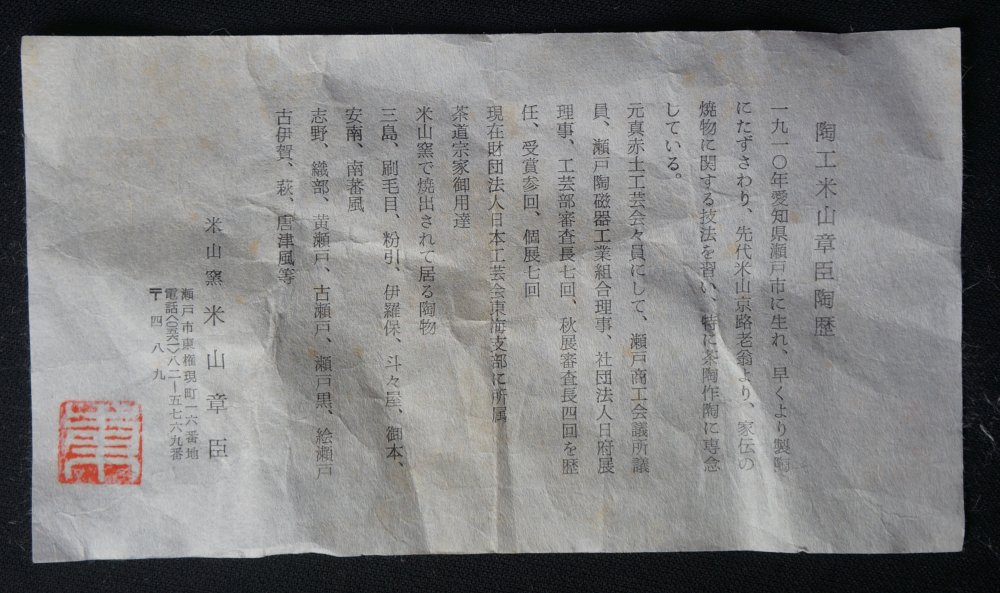 陶工米山章臣陶歴
一九一〇年愛知県瀬戸市に生れ、早くより製陶
にたずさわり、先代米山京路老翁より、家伝の
焼物に関する技法を習い、特に茶陶作陶に専念
している。
元真赤土工芸会々員にして、瀬戸商工会議所議
員、瀬戸陶磁器工業組合理事、社団法人日府展
理事、工芸部審査長七回、秋展審査長四回を歴
任、受賞参回、個展七回
現在財団法人日本工芸会東海支部に所属
茶道宗家御用達
米山窯で焼出されて居る陶物
三島、刷毛目、粉引、伊羅保、斗々屋、御本、
安南、南蕃風
志野、織部、黄瀬戸、古瀬戸、瀬戸黒、絵瀬戸
古伊賀、萩、唐津風等
米山窯 米山章臣
瀬戸市東権現町一六番地
電話〈〇五六一〉八二―五七六九番
〒四八九